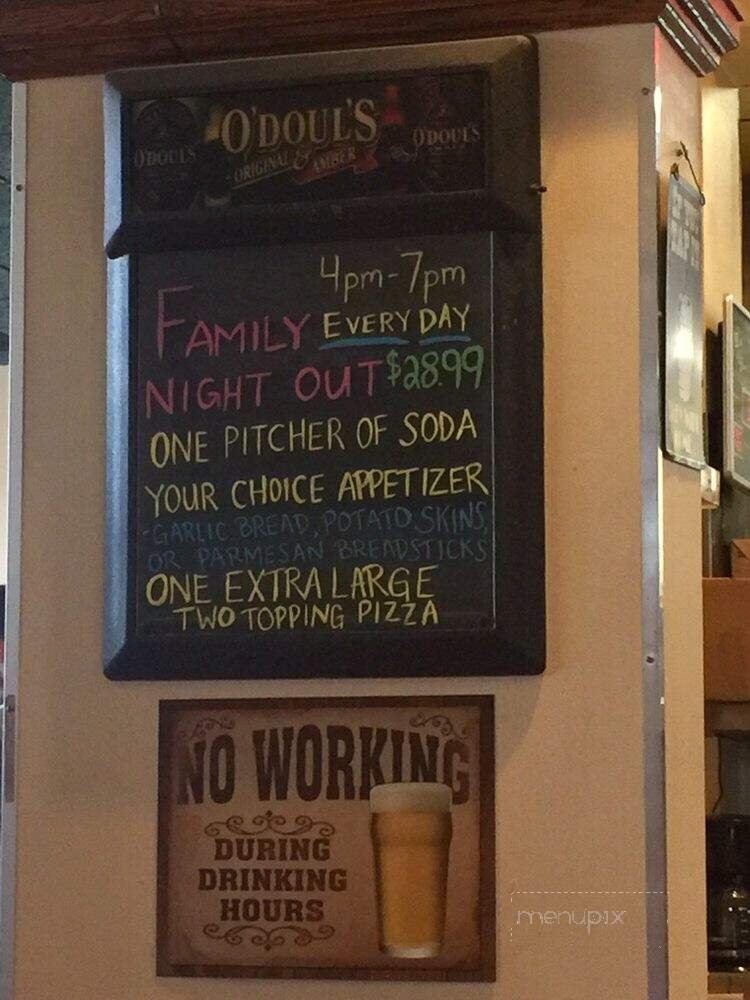 O'DOUL'S
O'DOUL'S
O'DOUL'S
ORIGINAL & AMBER
4pm-7pm
FAMILY EVERY DAY
NIGHT OUT $28.99
ONE PITCHER OF SODA
YOUR CHOICE APPETIZER
-GARLIC BREAD, POTATO SKINS,
OR PARMESAN BREADSTICKS
ONE EXTRA LARGE
TWO TOPPING PIZZA
NO WORKING
DURING
DRINKING
HOURS
menupix